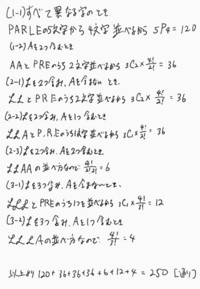 (1-1)すべて異なる字のとき
PARLEの5文字から4文字並べるから 5P4=120
(1-2)Aを2つ含むとき
AAとPREのうち2文字並べるから 3C2×4!/2!=36
(2-1)Lを2つ含み、Aを含まないとき、
LLとPREのうち2文字並べるから 3C2×4!/2!=36
(2-2)Lを2つ含み、Aを1つ含むとき
LLAとP,R,Eのうち1文字並べるから 3C1×4!/2!=36
(2-3)Lを2つ含み、Aを2つ含むとき、
LLAAの並べ方なので 4!/2!2!=6
(3-1)Lを3つ含み、Aを含まないとき、
LLLとPREのうち1つを並べるから 3C1×4!/3!=12
(3-2)Lを3つ含み、Aを1つ含むとき
LLLAの並べ方なので 4!/3!=4
以上より 120+36+36+36+6+12+4=250 [通り]